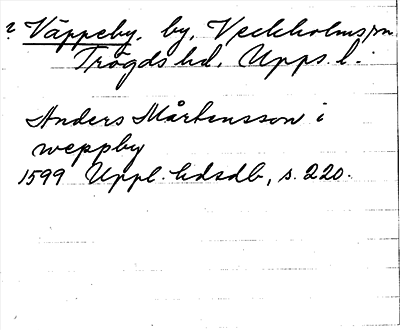 ? Väppeby. by, Veckholms sn
Trögds hd, Upps. l.
Anders Mårtensson i
weppby
1599 Uppl. hdsdb, s. 220.